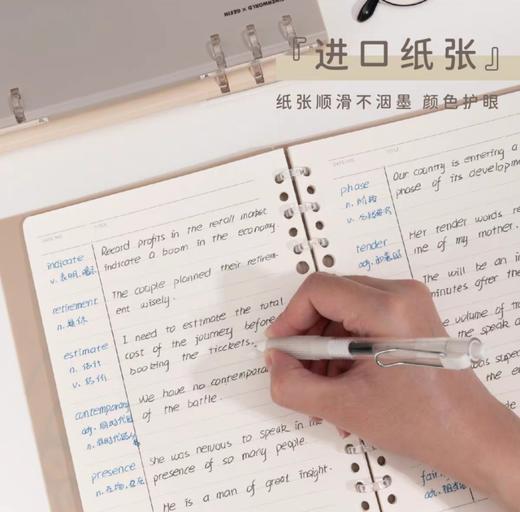 『进口纸张』
纸张顺滑不洇墨 颜色护眼
indicate
v. 表明
Record profits in the retail market
indicate a boom in the economy.
retirement
n. 退休
The couple planned their retirem-
ent wisely.
estimate
n. 估计
v. 估价
I need to estimate the total
cost of the journey before
booking the tickets.
contemporary
adj.
n.
We have no contemporar
of the battle.
presence
n.
She was nervous to speak in the
presence of so many people.
He is a man of great insight.
phase
n. 阶段
v.
Our country is entering a
phase of its developm
tender
adj.
Her tender words re
me of my mother.
The will be an in
minutes after the
e volume of tra
the speak a
was supe
the e
fair
adj.